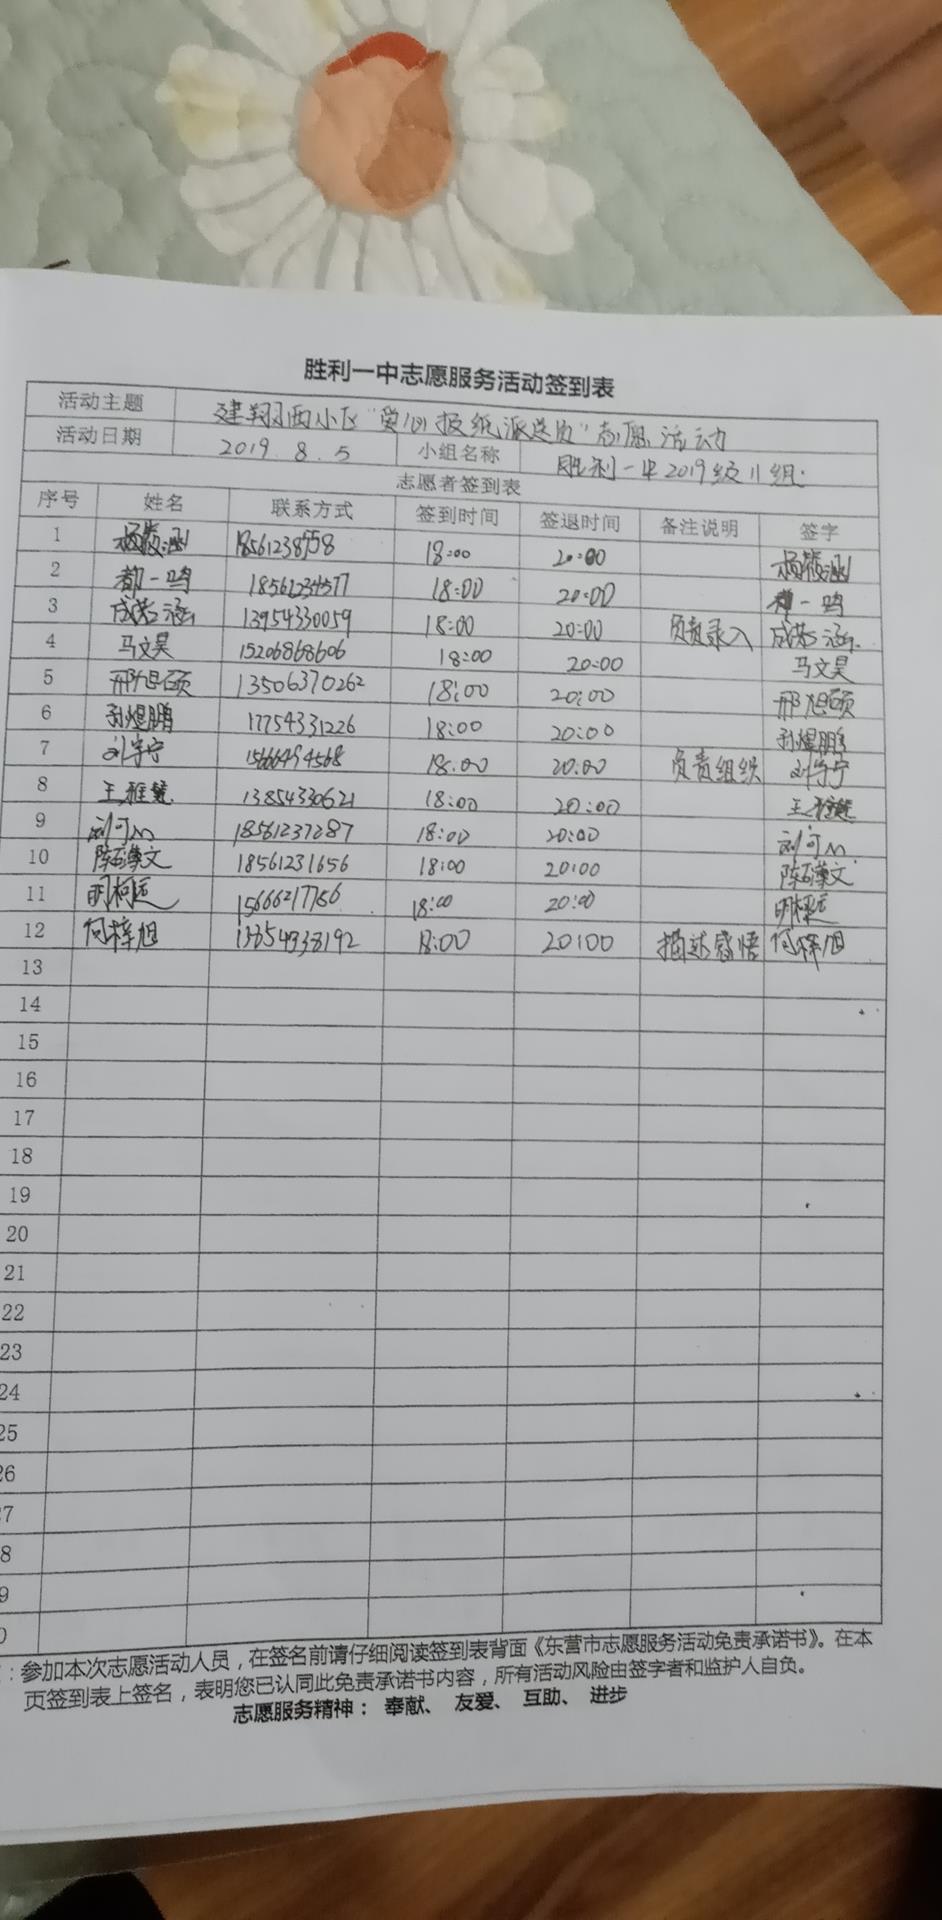 胜利一中志愿服务活动签到表
活动主题 建翔西小区"爱心报纸派送员"志愿活动
活动日期 2019.8.5 小组名称 胜利一中2019级11组
志愿者签到表
序号 姓名 联系方式 签到时间 签退时间 备注说明 签字
1 18:00 20:00
2 都一鸣 18:00 20:00 都一鸣
3 成若涵 13954330059 18:00 20:00 负责录入 成若涵
4 马文昊 15206868606 18:00 20:00 马文昊
5 邢旭硕 13506370262 18:00 20:00 邢旭硕
6 孙煜鹏 17754331226 18:00 20:00 孙煜鹏
7 刘宇宁 15666494568 18:00 20:00 负责组织 刘宇宁
8 王雅慧 13854330621 18:00 20:00 王雅慧
9 18561237287 18:00 20:00
10 18561231656 18:00 20:00
11 15666217786 18:00 20:00
12 何梓旭 18:00 20:00 描述感悟 何梓旭
13
14
15
16
17
18
19
20
21
22
23
24
25
26
7
8
9
0
：参加本次志愿活动人员，在签名前请仔细阅读签到表背面《东营市志愿服务活动免责承诺书》。在本
页签到表上签名，表明您已认同此免责承诺书内容，所有活动风险由签字者和监护人自负。
志愿服务精神： 奉献、 友爱、 互助、 进步